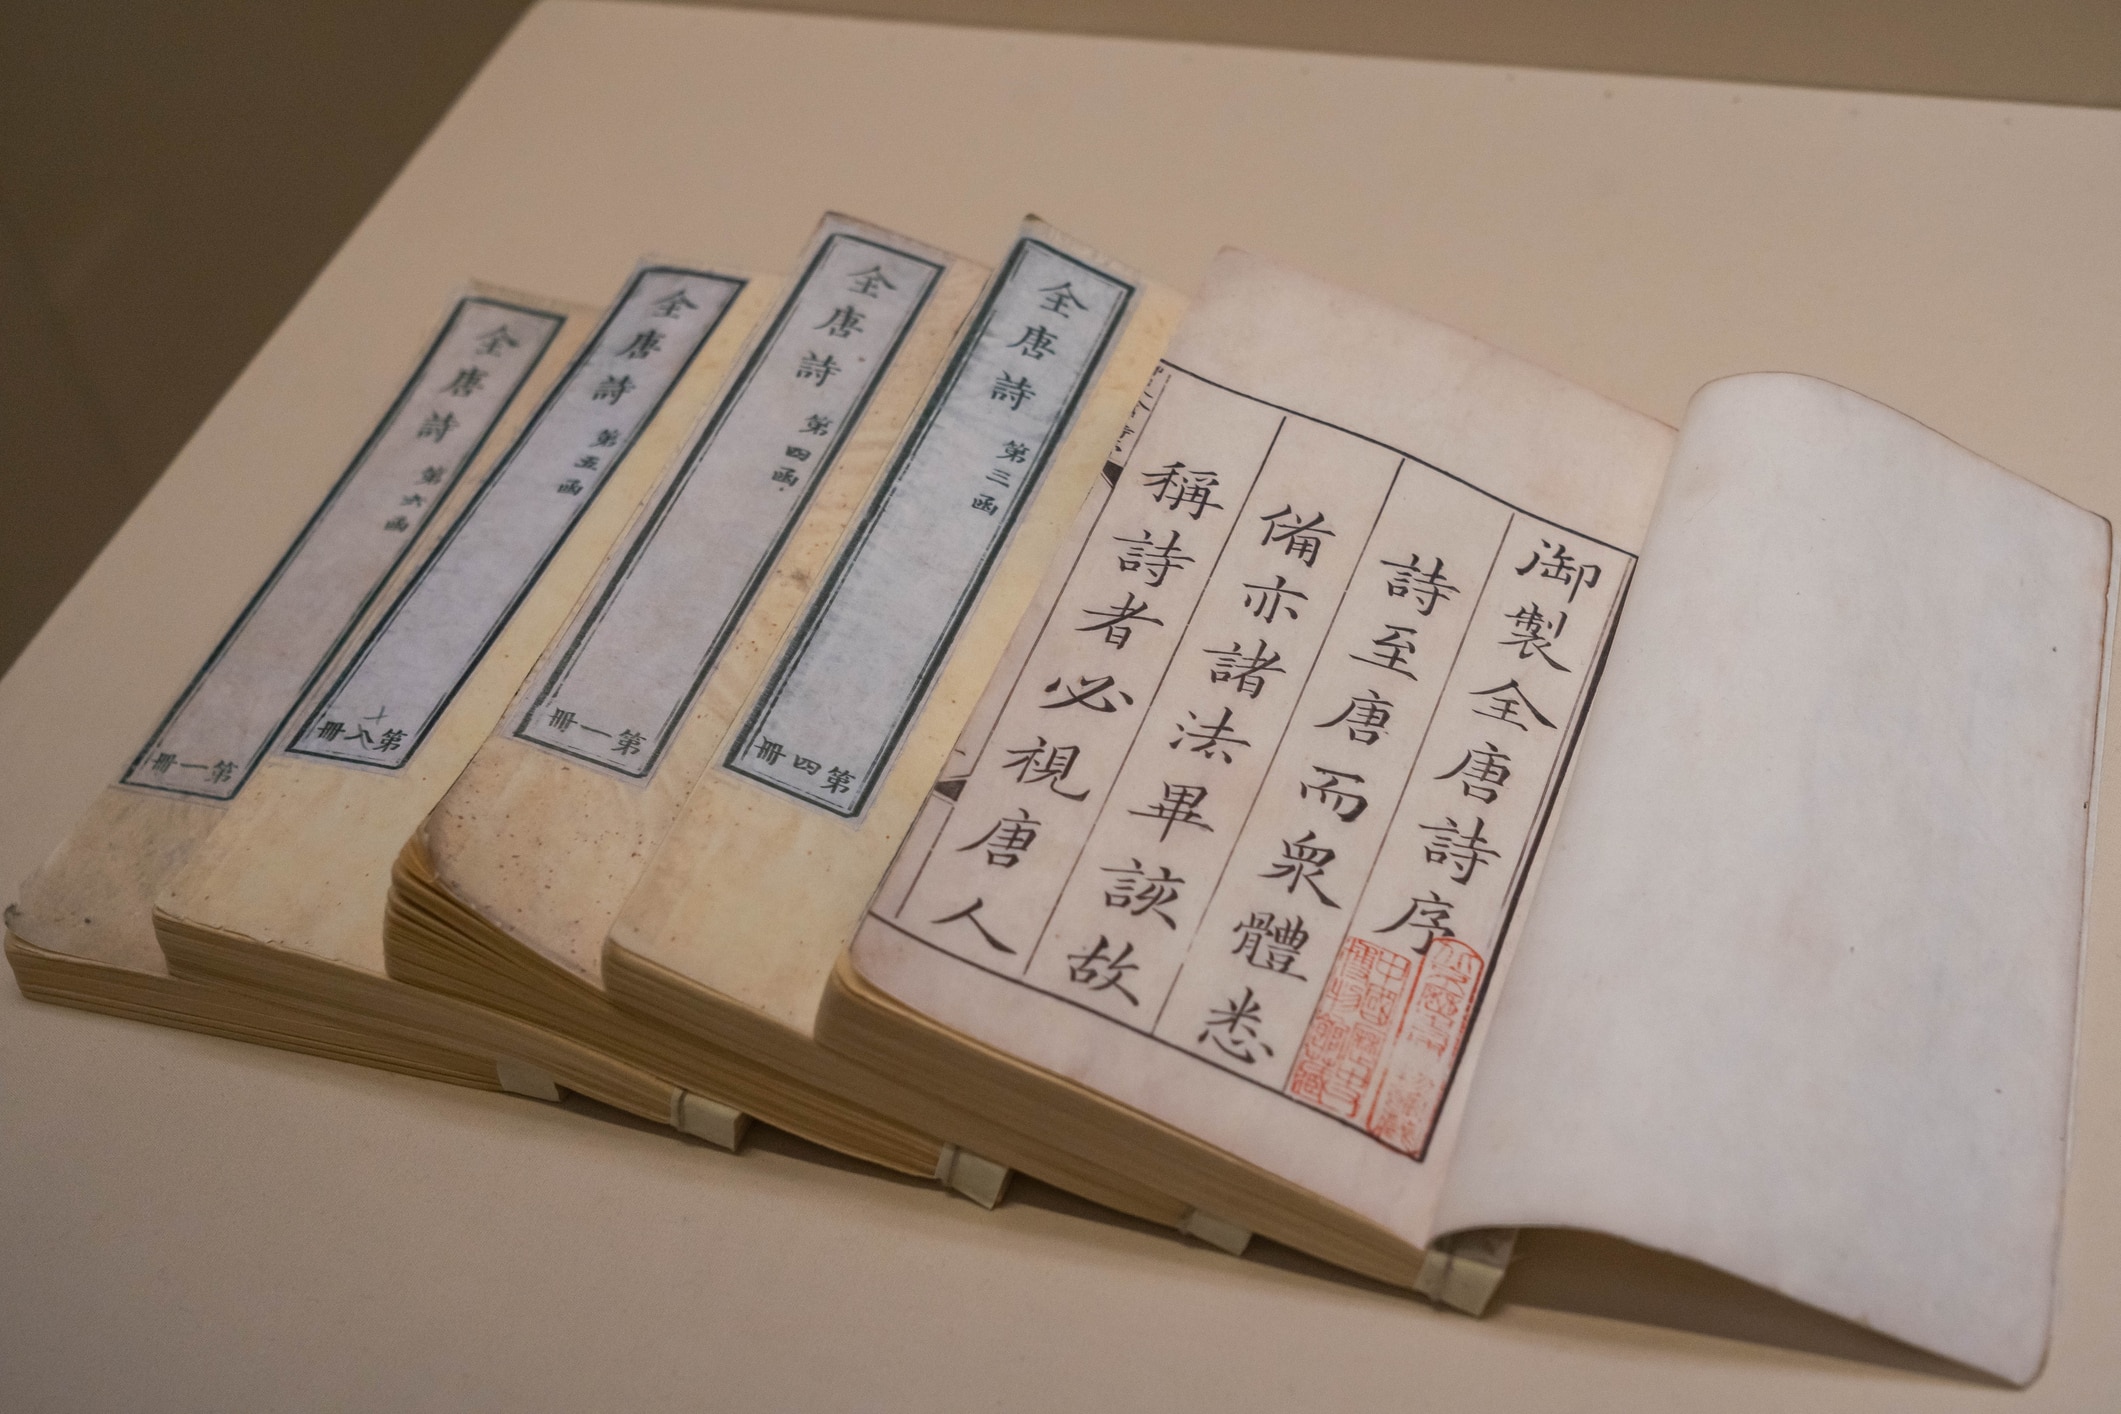 御製全唐詩序
詩至唐而衆體悉
備亦諸法畢該故
稱詩者必視唐人
中國歷史
博物館藏
全唐詩 第三函
第四冊
全唐詩 第四函
第一冊
全唐詩 第五函
第八冊
全唐詩 第六函
第一冊